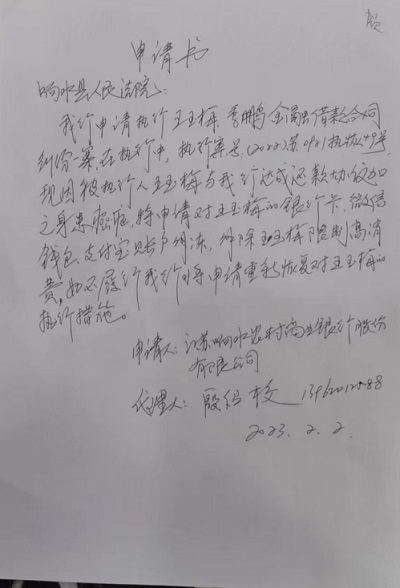 申请书
响水县人民法院:
我行申请执行王玉梅、李鹏金融借款合同
纠纷一案,在执行中,执行案号(2022)苏0921执恢49号
现因被执行人王玉梅与我行达成还款协议加
之身患癌症,特申请对王玉梅的银行卡、微信
钱包、支付宝账户解冻,解除王玉梅限制高消
费。如不履行我行将申请重新恢复对王玉梅的
执行措施。
申请人:江苏响水农村商业银行股份
有限公司
代理人:殷 校
2023.2.2